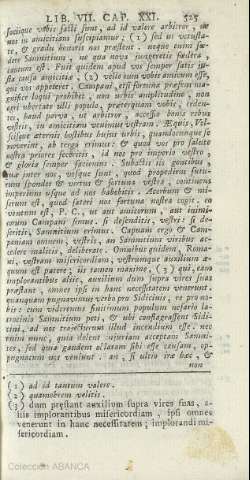 LIB. VII. CAP. XXI. 525
sociique vobis facti sunt, ad id valere arbitror, ne
nos in amicitiam suscipiamur; (1) sed ut vetusta-
te, & gradu honoris nos præstent. neque enim fœ-
dere Samnitium, ne qua nova jungeretis fœdera,
cautum est. Fuit quidem apud vos semper satis ju-
sta causa amicitiæ, (2) velle eum vobis amicum esse,
qui vos appeteret. Campani, etsi fortuna præsens ma-
gnifice loqui prohibet, non urbis amplitudine, non
agri ubertate ulli populo, præterquam vobis, ceden-
tes, haud parva, ut arbitror, accessio bonis rebus
vestris, in amicitiam venimus vestram. Æquis, Vol-
scisque æternis hostibus hujus urbis, quandocunque se
moverint, ab tergo erimus: & quod vos pro salute
nostra priores feceritis, id nos pro imperio vestro,
& gloria semper faciemus. Subactis iis gentibus,
quæ inter nos, vosque sunt, quod propediem futu-
rum spondet & virtus & fortuna vestra, continens
imperium usque ad nos habebitis. Acerbum & mi-
serum est, quod fateri nos fortuna nostra cogit. eo
ventum est, P. C., ut aut amicorum, aut inimi-
corum Campani simus. si defenditis, vestri; si de-
seritis, Samnitium erimus. Capuam ergo & Cam-
paniam omnem, vestris, an Samnitium viribus ac-
cedere malitis, deliberate. Omnibus quidem, Roma-
ni, vestram misericordiam, vestrumque auxilium æ-
quum est patere; iis tamen maxime, (3) qui, eam
implorantibus aliis, auxilium dum supra vires suas
præstant, omnes ipsi in hanc necessitatem venerunt.
quanquam pugnavimus verbo pro Sidicinis, re pro no-
bis: cum videremus finitimum populum nefario la-
trocinio Samnitium peti, & ubi conflagrassent Sidi-
cini, ad nos trajecturum illud incendium esse. nec
enim nunc, quia dolent injuriam acceptam Samni-
tes, sed quia gaudent oblatam sibi esse causam, op-
pugnatum nos veniunt. an, si ultio iræ hæc, &
non
(1) ad id tantum valere.
(2) quamobrem velitis.
(3) dum præstant auxilium supra vires suas, a-
liis implorantibus misericordiam, ipsi omnes
venerunt in hanc necessitatem; implorandi mi-
sericordiam.
Colección ABANCA